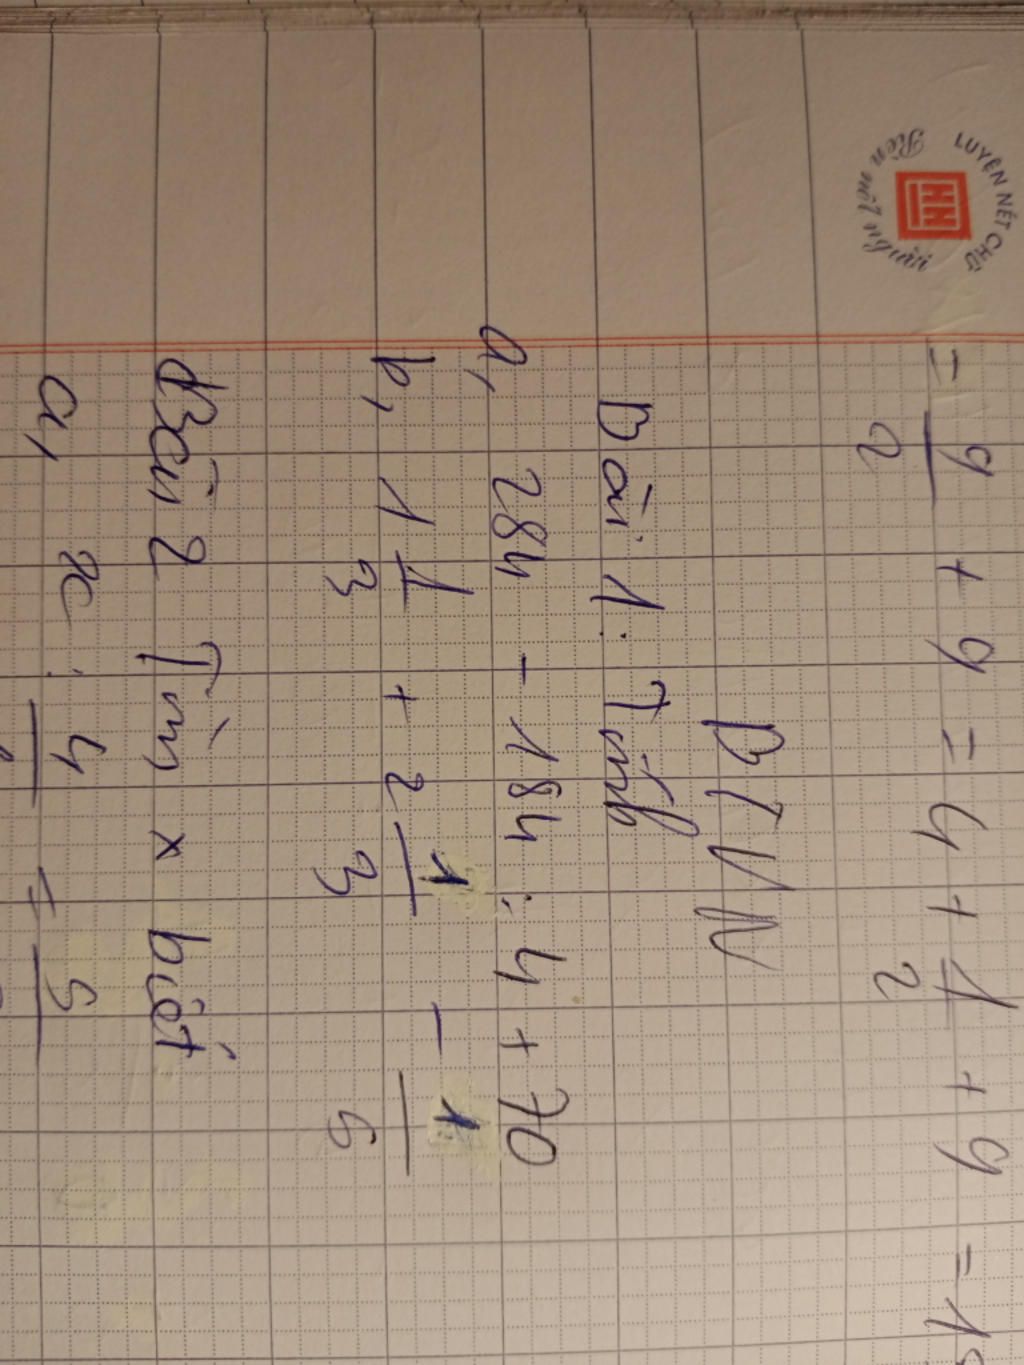 LUYỆN NẾT CHỮ
Rèn nết người
= 9/2 + 9 = 4 + 1/2 + 9 =
BTVN
Bài 1: Tính
a, 284 - 184 : 4 + 70
b, 1 1/3 + 2 1/3 - 1/5
Bài 2 Tìm x biết
a, x : 4 = 5